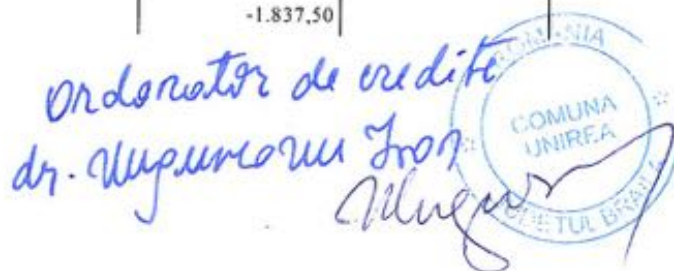 -1.837,50
Ordonator de credite
dr. Ungureanu Ivon
ROMANIA
COMUNA
UNIREA
JUDETUL BRAILA